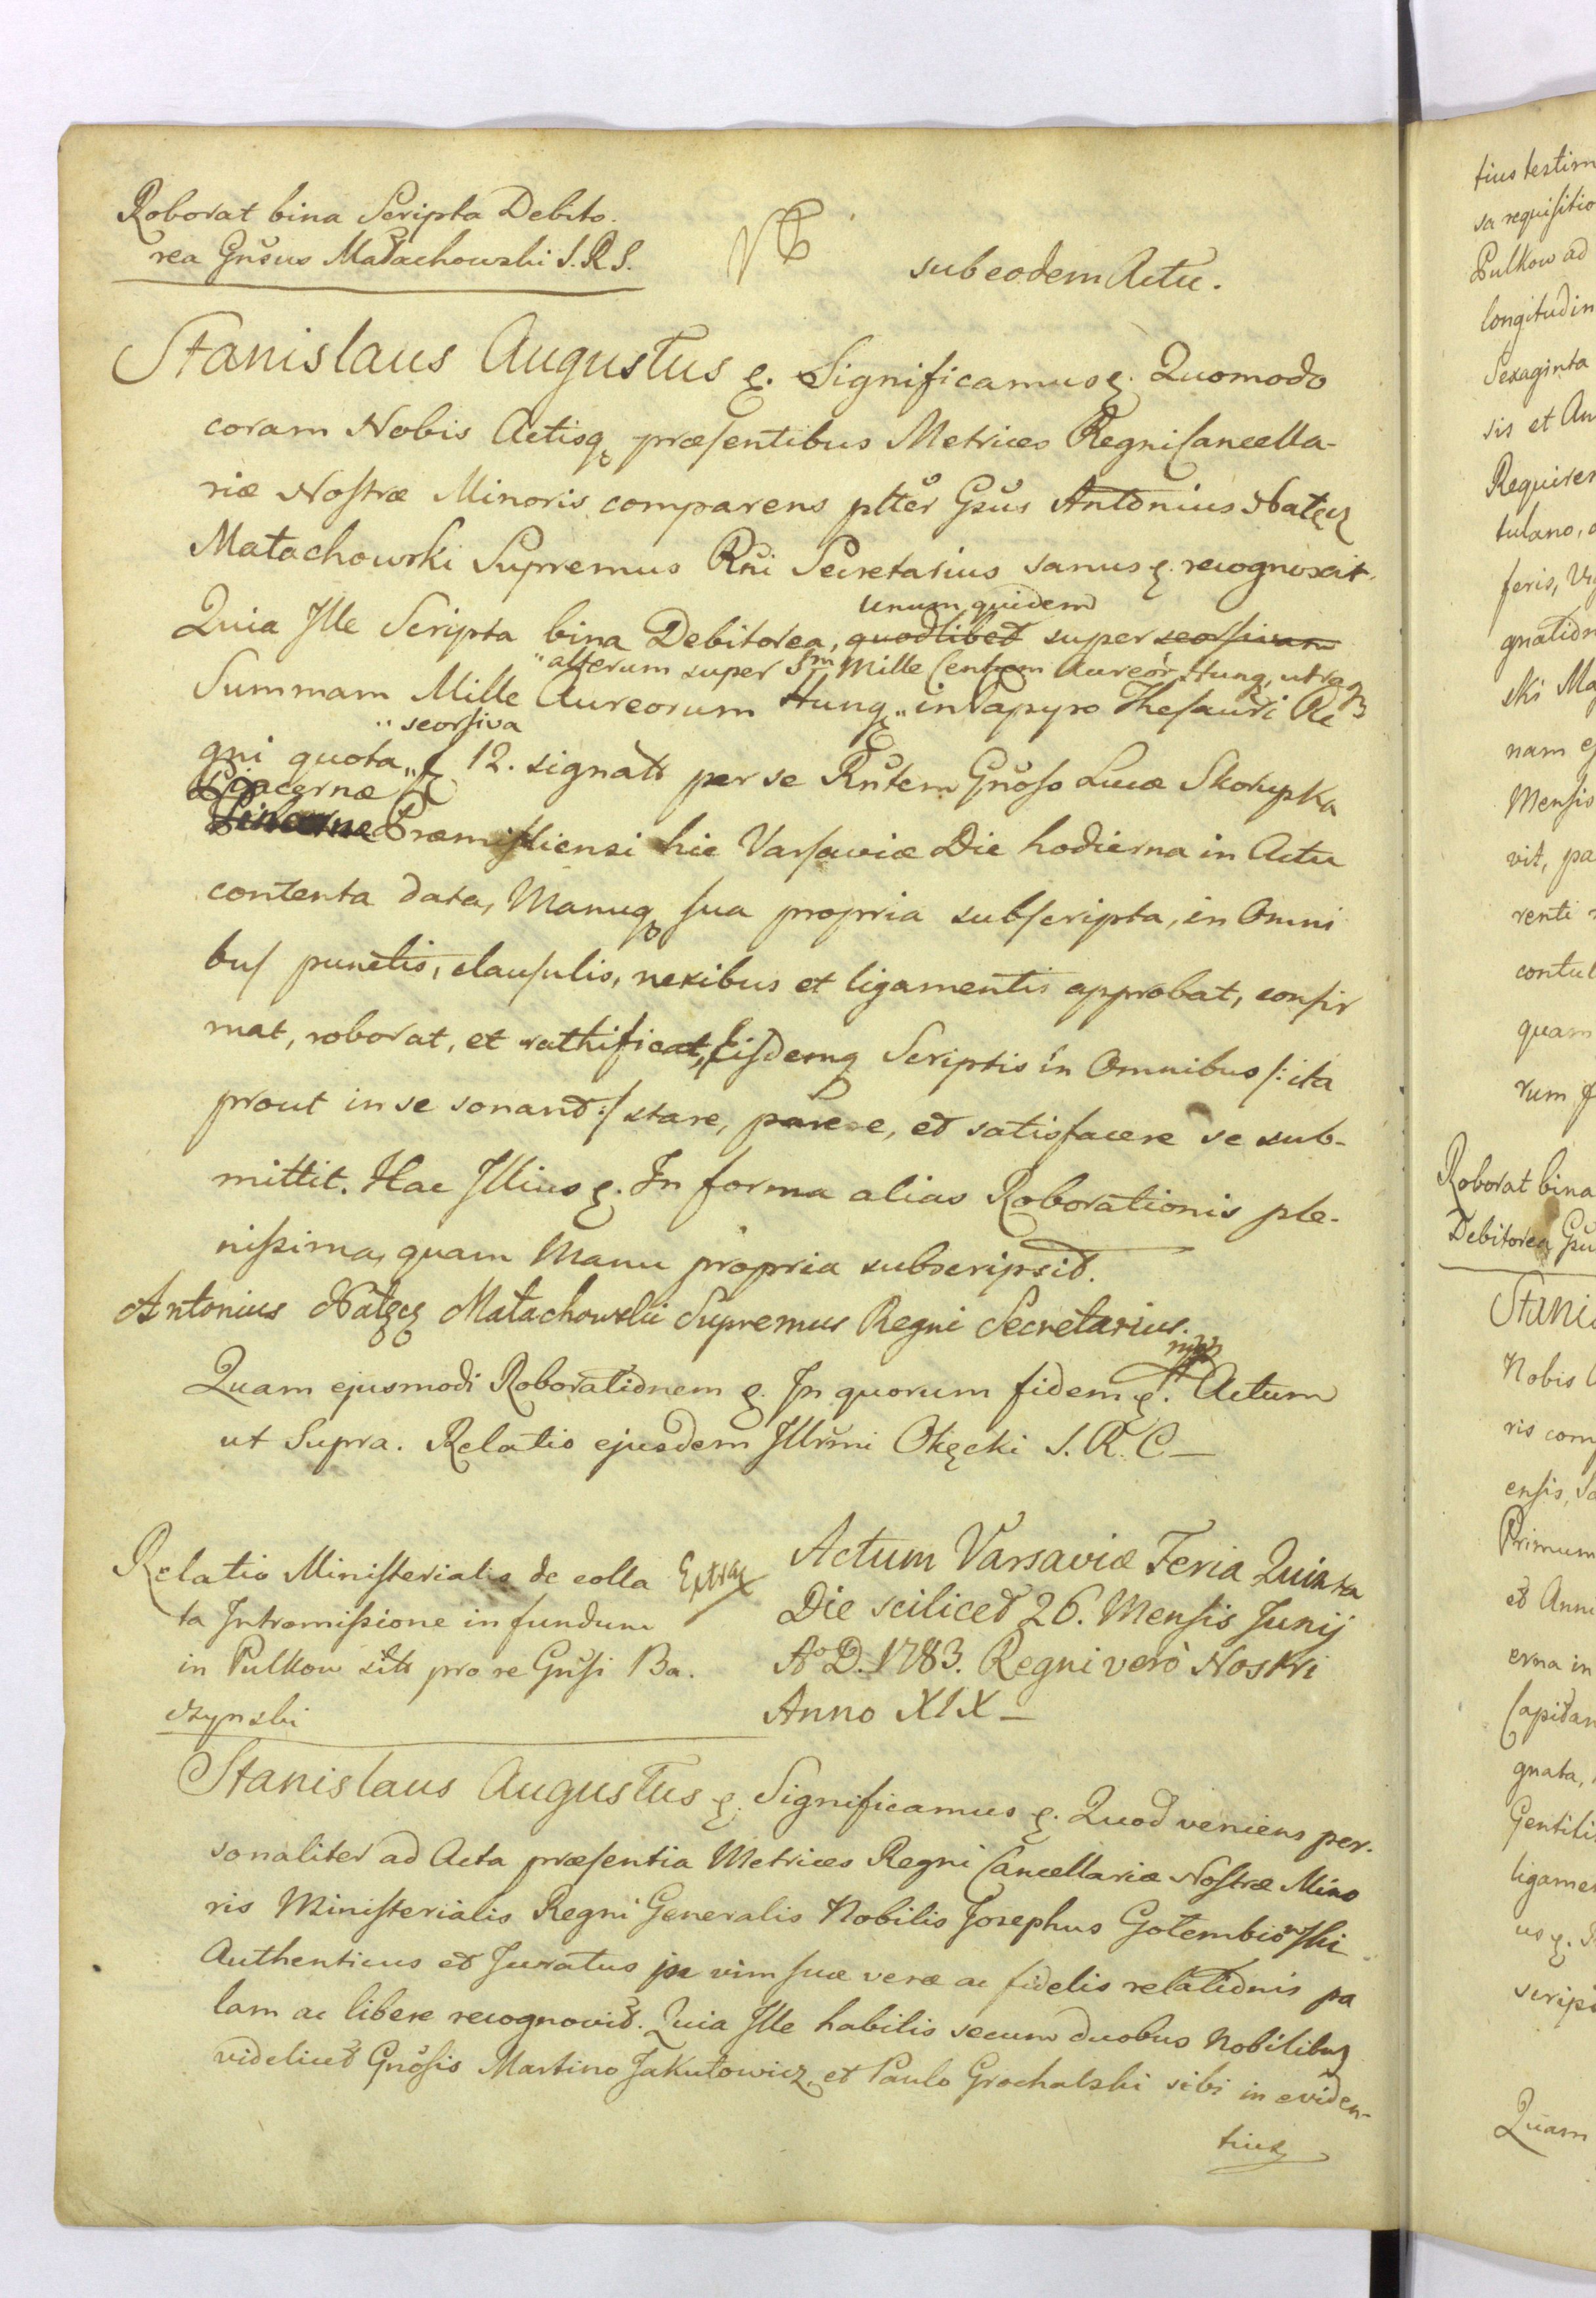 Roborat bina Scripta Debito.
rea Gnŏsus Małachowski S. R. S.
sub eodem Actu.
Stanislaus Augustus &. Significamus &. Quomodo
coram Nobis Actisq præsentibus Metrices Regni Cancella-
riæ Nostræ Minoris comparens pltěr Gsŭs Antonius Nałęcz
Małachowski Supremus Rňi Secretarius sanus &. recognoscit.
Unum quidem
Quia Ille Scripta bina Debitorea, quodlibet super seorsivam
"alterum super Sm̃ Mille Centum Aureor Hung, utraq
Summam Mille Aureorum Hung " in Papyro Thesauri Re
" seorsiva
gni quota " f 12. signato per se Rňtem Gnŏso Lucæ Skorupka
Pincernæ
Præmisliensi hic Varsaviæ Die hodierna in Actu
contenta data, Manuq sua propria subscripta, in Omni
bus punctis, clausulis, nexibus et ligamentis approbat, confir
mat, roborat, et rathificat, Eisdemq Scriptis in Omnibus /: ita
prout in se sonant :/ stare, parere, et satisfacere se sub-
mittit. Hac Illius &. In forma alias Roborationis ple-
nissima, quam Manu propria subscripsit.
Antonius Nałęcz Małachowski Supremus Regni Secretarius.
mpp
Quam ejusmodi Roborationem &. In quorum fidem &. Actum
ut Supra. Relatio ejusdem Illrm̃i Okęcki S. R. C_
Relatio Ministerialis de colla
ta Intromissione in fundum
in Pulkow sito pro re Gnŏsi Ba.
rzynski
Extrax
Actum Varsaviæ Feria Quinta
Die scilicet 26. Mensis Junij
Aº D. 1783. Regni verò Nostri
Anno XIX_
Stanislaus Augustus &. Significamus &. Quod veniens per.
sonaliter ad Acta præsentia Metrices Regni Cancellariæ Nostræ Mino
ris Ministerialis Regni Generalis Nobilis Josephus Gołembiowski
Authenticus et Juratus in vim suæ veræ ac fidelis relationis pa
lam ac libere recognovit. Quia Ille habitis secum duobus Nobilibus
videlicet Gnŏsis Martino Jakutowicz, et Paulo Grochalski sibi in eviden-
tius
tius testim
sa requisitio
Pulkow ad
longitudin
Sexaginta
sis et An
Requiren
tulano,
feris,
gnation
ski Ma
nam
Mensis
vit, pa
renti
contul
quam
rum
Roborat bina
Debitorea Gsu
Stani
Nobis
ris com
ensis,
Primum
et Ann
erna in
Capitan
gnata,
Gentili
ligamen
us &.
scrips
Quam